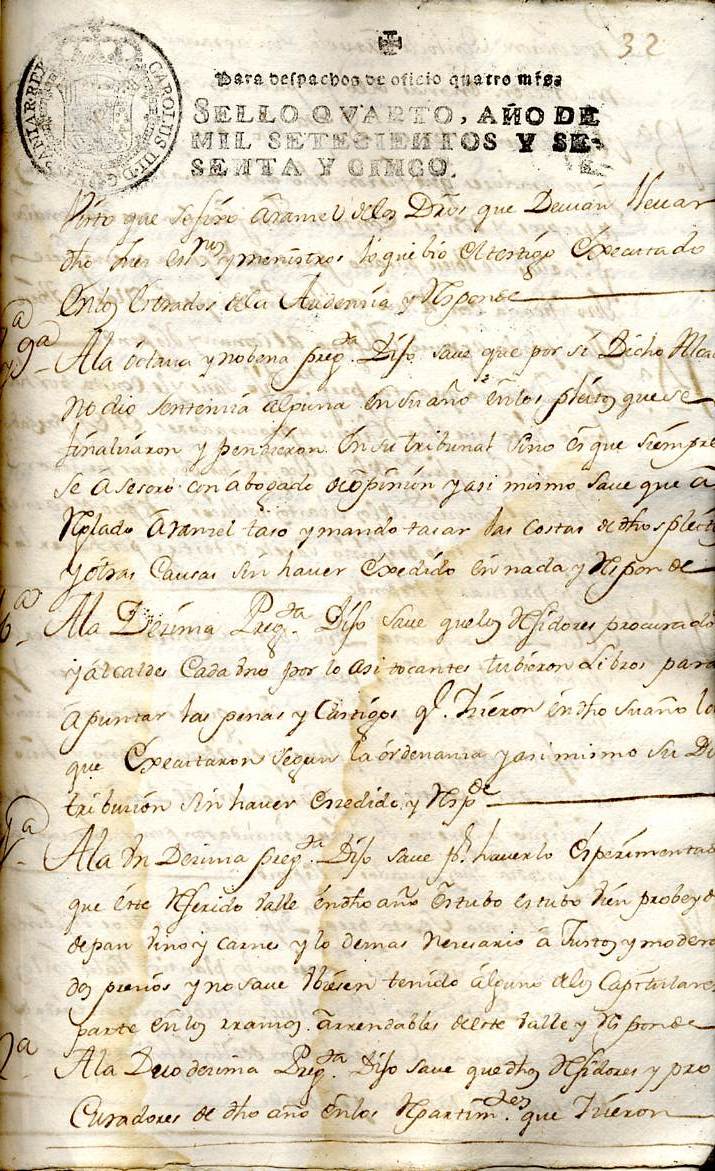 32
Para despachos de oficio quatro mrs.
SELLO QVARTO, AÑO DE
MIL SETECIENTOS Y SE-
SENTA Y CINCO.
CAROLUS III D.G.
Visto que se fixo Aranzel delos Dros que Devian llevar
dho Jues essnos y menistros lo que bio el testigo Executado
Enlos Estrados dela Audiencia y Responde
9a
Ala octava y nobena preg.ta Dijo save que por si Dicho Alcal
no dio sentencia alguna en su año enlos pleitos que se
finalizaron y pendieron En su tribunal sino es que siempre
se asesoro con abogado de opinion y asi mismo save que a
Reglado Aranzel taso y mando tasar las costas de dhos pleitos
y otras Causas sin haver Exedido en nada y Responde
Ala Dezima Preg.ta Dijo save quelos Rejidores procurado
y alcaldes Cada uno por lo asi tocantes tubieron Libros para
apuntar las penas y Castigos q.e hizieron en dho su año lo
que Executaron segun la ordenanza y asi mismo su Dis
tribucion sin haver exedido y Resp.de
Ala Un Dezima preg.ta Dijo save p.r haverlo Experimentado
que este Referido valle en dho año estubo estubo bien probeydo
de pan vino y carnes y lo demas necesario a Justos y modera
dos precios y no save Ubiesen tenido alguno delos Capitulares
parte enlos rramos arrendables deeste valle y Responde
Ala Duodezima Preg.ta Dijo save que dhos Rejidores y pro
Curadores de dho año enlos Repartim.tos que hizieron